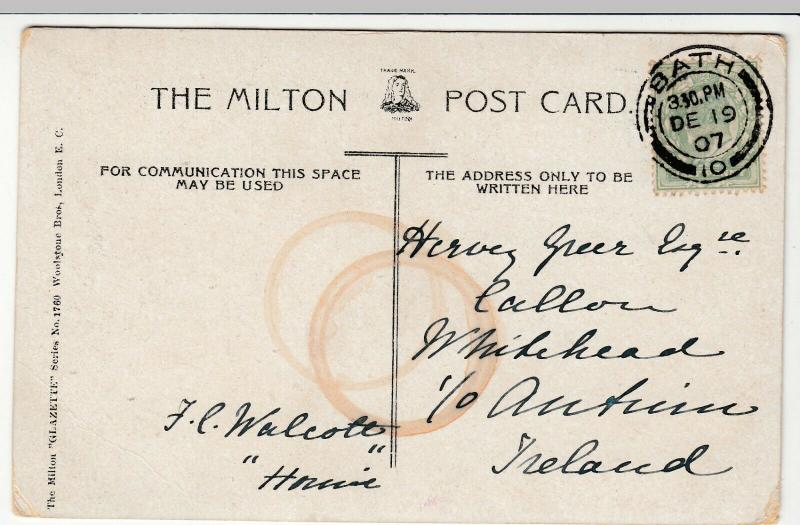 THE MILTON POST CARD.
TRADE MARK
MILTON
BATH
3.30.PM
DE 19
07
10
FOR COMMUNICATION THIS SPACE
MAY BE USED
THE ADDRESS ONLY TO BE
WRITTEN HERE
Hervey Greer Esqre
Whitehead
C/o Antrim
Ireland
F. C. Walcott
The Milton "GLAZETTE" Series No. 1760 Woolstone Bros, London E. C.